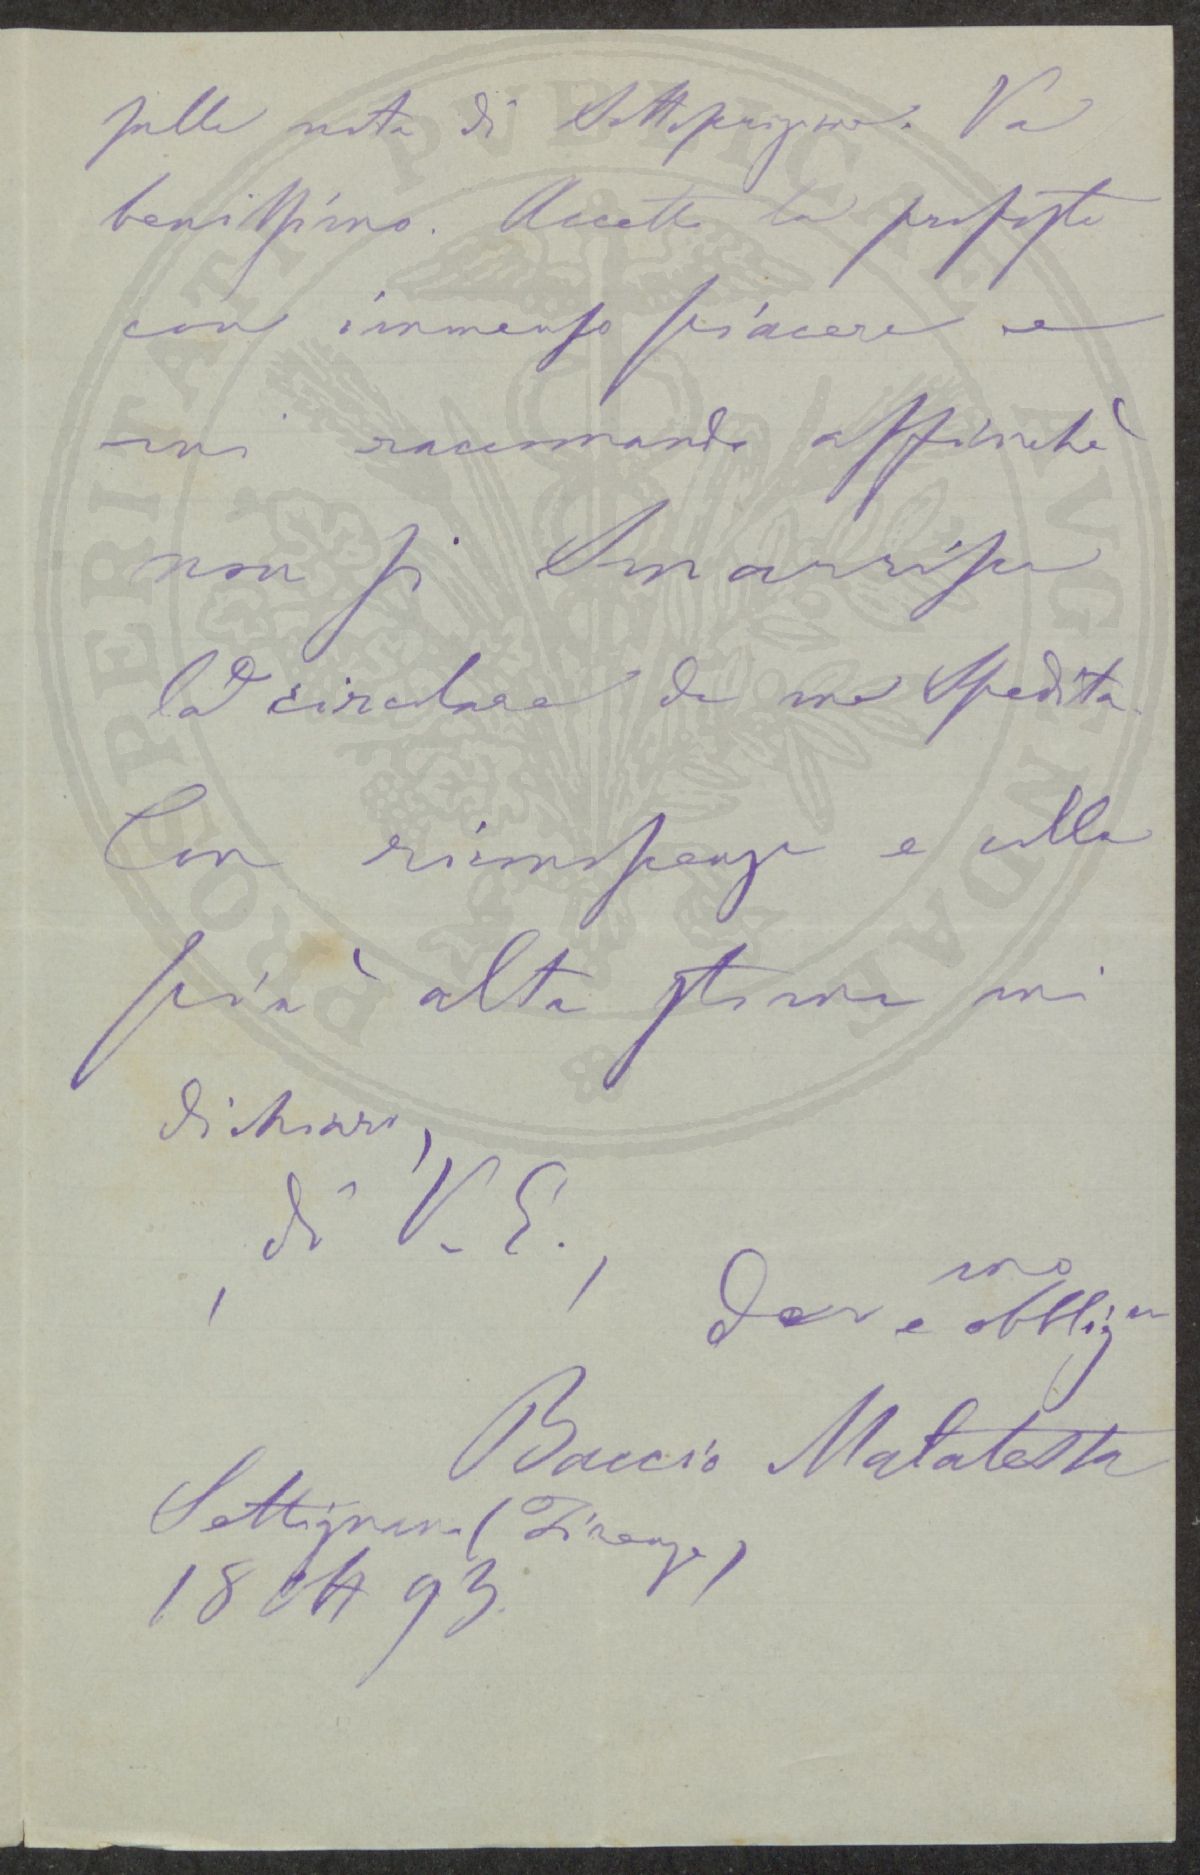 sulla nota di Sottoscrizione. Va
benissimo. Accetto la proposta
con immenso piacere e
mi raccomando affinchè
non si smarrisca
la circolare da me spedita.
Con riconoscenza e colla
più alta stima mi
dichiaro,
di V. E.,
Dev e obblig mo
Baccio Malatesta
Settignano (Firenze)
18 Ott 93.
PROSPERITATI PVBLICAE AVGENDAE